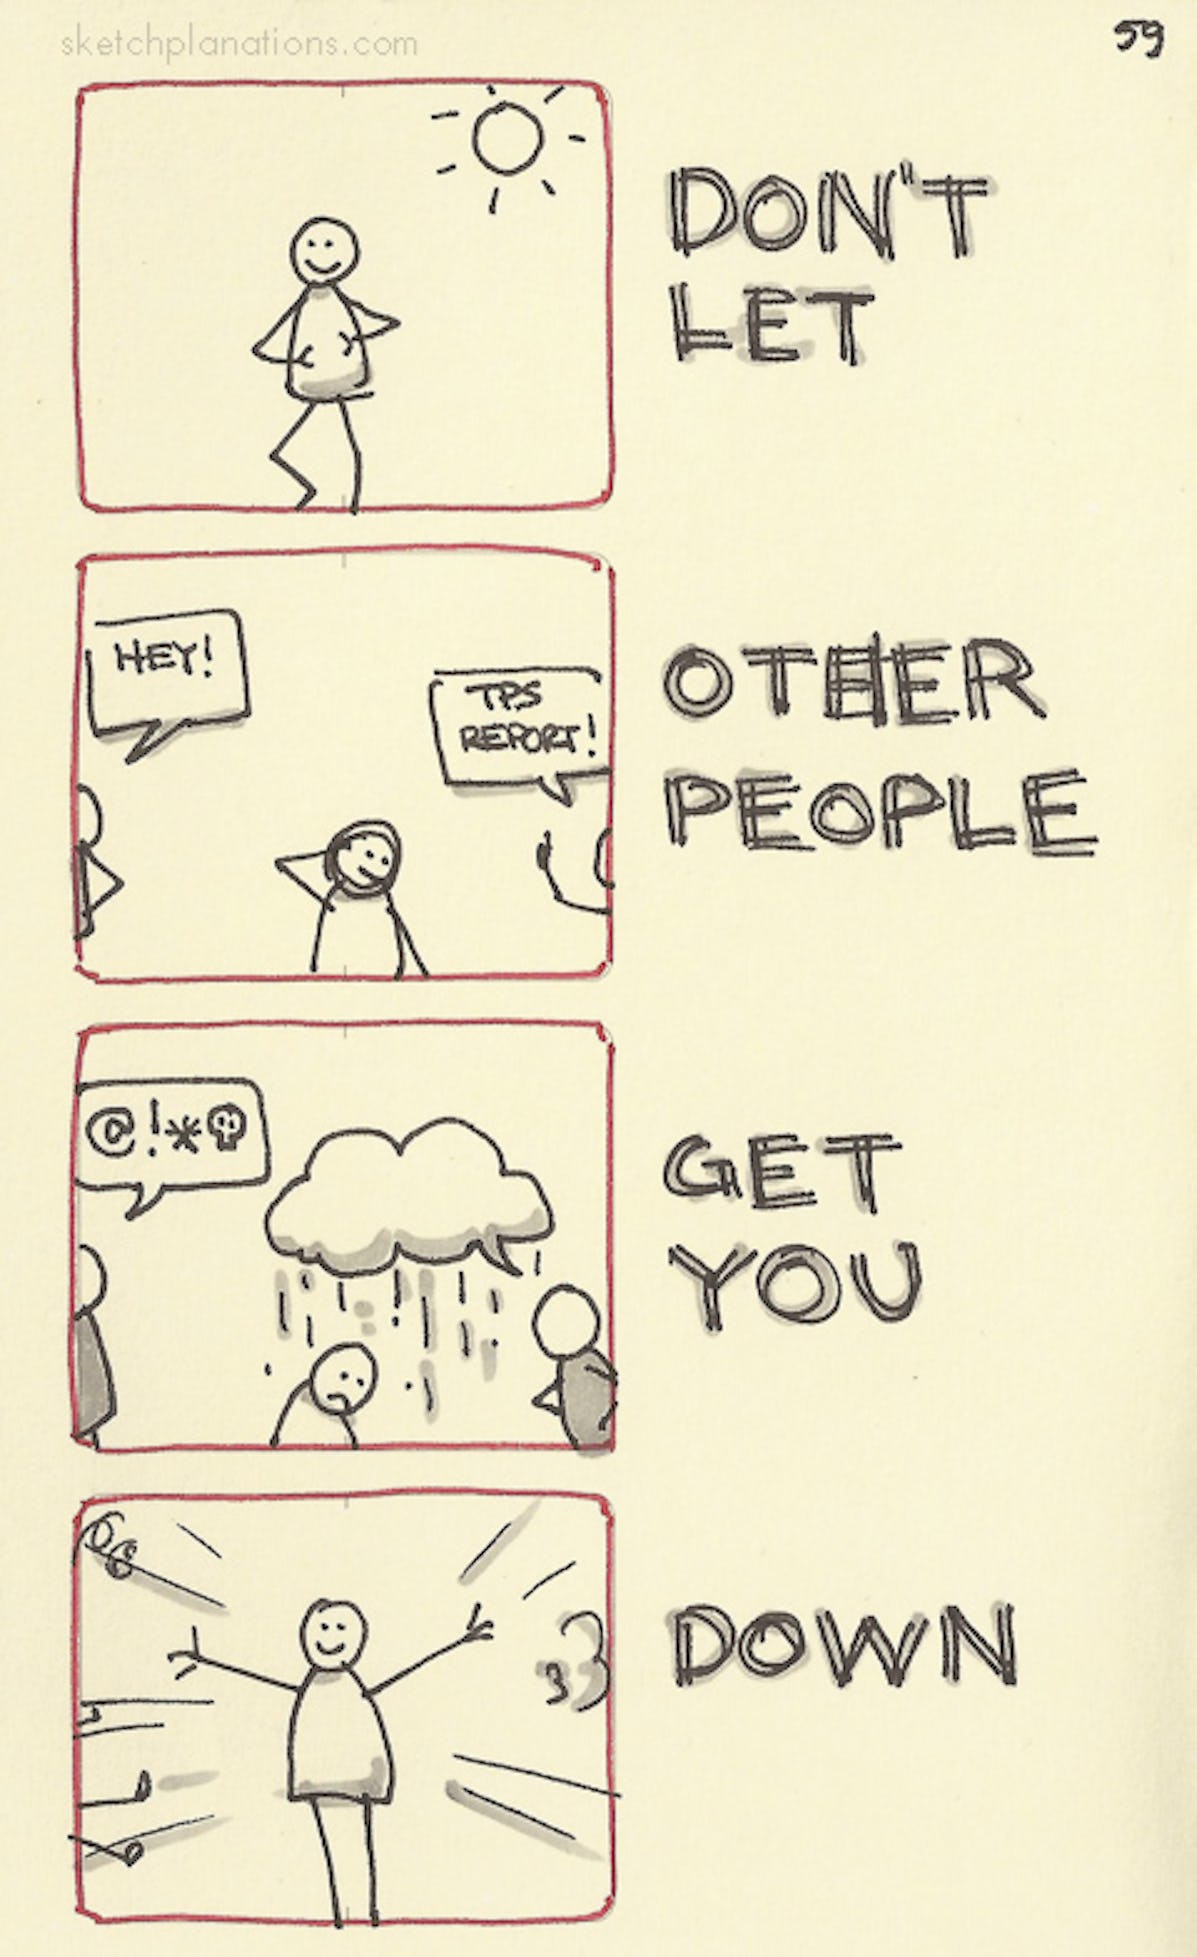 sketchplanations.com
59
DON'T
LET
HEY!
TPS
REPORT!
OTHER
PEOPLE
@!*
GET
YOU
DOWN